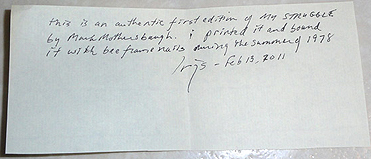 this is an authentic first edition of My STRUGGLE
by Mark Mothersbaugh. i printed it and bound
it with bee frame nails during the summer of 1978
- Feb 13, 2011